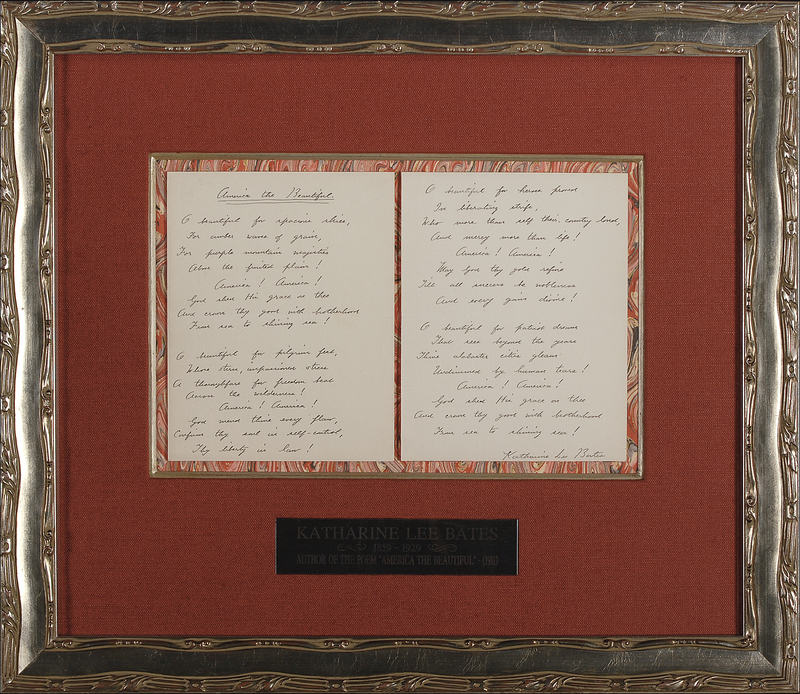 America the Beautiful.
O beautiful for spacious skies,
For amber waves of grain,
For purple mountain majesties
Above the fruited plain!
America! America!
God shed His grace on thee
And crown thy good with brotherhood
From sea to shining sea!
O beautiful for pilgrim feet,
Whose stern, impassioned stress
A thoroughfare for freedom beat
Across the wilderness!
America! America!
God mend thine every flaw,
Confirm thy soul in self-control,
Thy liberty in law!
O beautiful for heroes proved
In liberating strife,
Who more than self their country loved,
And mercy more than life!
America! America!
May God thy gold refine
Till all success be nobleness
And every gain divine!
O beautiful for patriot dream
That sees beyond the years
Thine alabaster cities gleam
Undimmed by human tears!
America! America!
God shed His grace on thee
And crown thy good with brotherhood
From sea to shining sea!
Katharine Lee Bates
KATHARINE LEE BATES
1859 - 1929
AUTHOR OF THE POEM "AMERICA THE BEAUTIFUL" -